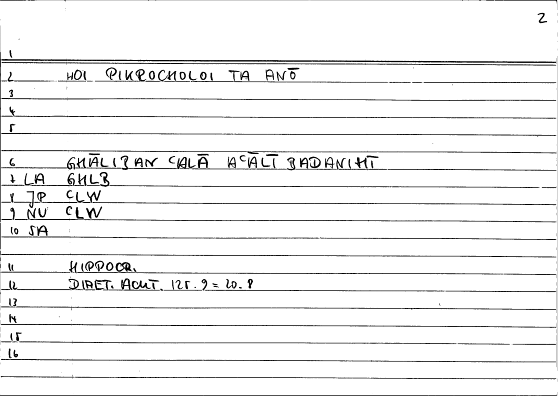 2
1
2 HOI PIKROCHOLOI TA ANŌ
3
4
5
6 GHĀLIBAN ʿALĀ AʿĀLĪ BADANIHĪ
7 LA GHLB
8 JP ʿLW
9 NU ʿLW
10 SA
11 HIPPOCR.
12 DIAET. ACUT. 125.9 = 20.8
13
14
15
16